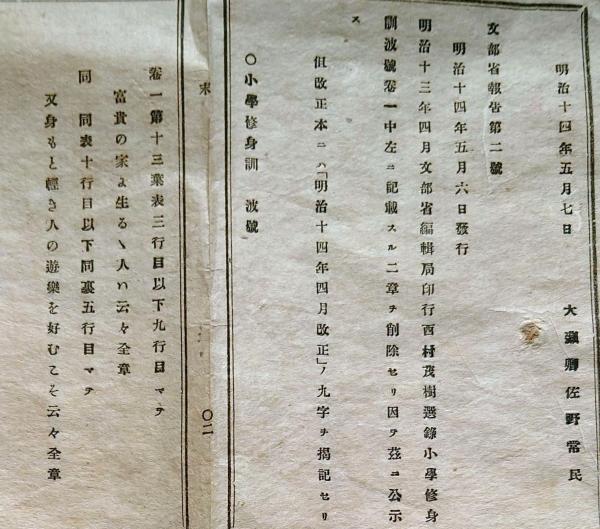 明治十四年五月七日
大藏卿佐野常民
文部省報告第二號
明治十四年五月六日發行
明治十三年四月文部省編輯局印行西村茂樹選錄小學修身
訓波號卷一中左ニ記載スル二章ヲ削除セリ因テ茲ニ公示
ス
但改正本ニハ「明治十四年四月改正」ノ九字ヲ揭記セリ
〇小學修身訓 波號
末
〇二
卷一第十三葉表三行目以下九行目マテ
富貴の家よ生るゝ人ハ云々全章
同 同表十行目以下同裏五行目マテ
又身もと輕き人の遊樂を好むこそ云々全章